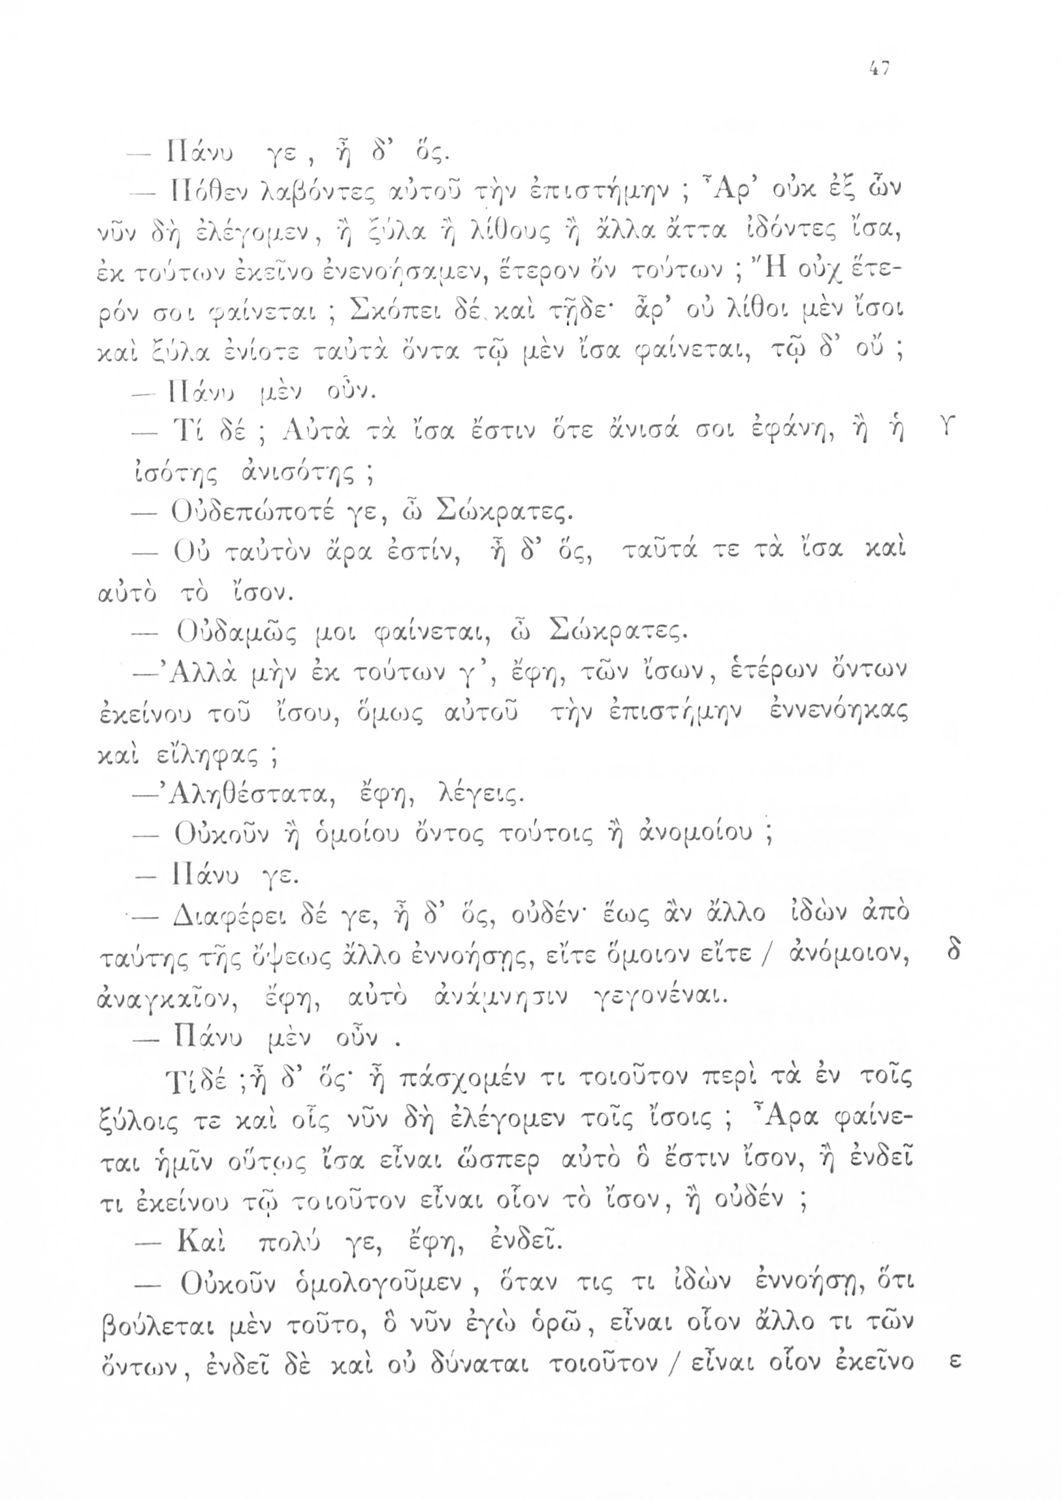 47
— Πάνυ γε , ἦ δ’ ὅς.
— Πόθεν λαβόντες αὐτοῦ τὴν ἐπιστήμην ; Ἆρ’ οὐκ ἐξ ὧν
νῦν δὴ ἐλέγομεν, ἢ ξύλα ἢ λίθους ἢ ἄλλα ἄττα ἰδόντες ἴσα,
ἐκ τούτων ἐκεῖνο ἐνενοήσαμεν, ἕτερον ὂν τούτων ; Ἢ οὐχ ἕτε-
ρόν σοι φαίνεται ; Σκόπει δὲ καὶ τῇδε· ἆρ’ οὐ λίθοι μὲν ἴσοι
καὶ ξύλα ἐνίοτε ταὐτὰ ὄντα τῷ μὲν ἴσα φαίνεται, τῷ δ’ οὔ ;
— Πάνυ μὲν οὖν.
— Τί δέ ; Αὐτὰ τὰ ἴσα ἔστιν ὅτε ἄνισά σοι ἐφάνη, ἢ ἡ γ
ἰσότης ἀνισότης ;
— Οὐδεπώποτέ γε, ὦ Σώκρατες.
— Οὐ ταὐτὸν ἄρα ἐστίν, ἦ δ’ ὅς, ταῦτά τε τὰ ἴσα καὶ
αὐτὸ τὸ ἴσον.
— Οὐδαμῶς μοι φαίνεται, ὦ Σώκρατες.
—Ἀλλὰ μὴν ἐκ τούτων γ’, ἔφη, τῶν ἴσων, ἑτέρων ὄντων
ἐκείνου τοῦ ἴσου, ὅμως αὐτοῦ τὴν ἐπιστήμην ἐννενόηκας
καὶ εἴληφας ;
—Ἀληθέστατα, ἔφη, λέγεις.
— Οὐκοῦν ἢ ὁμοίου ὄντος τούτοις ἢ ἀνομοίου ;
— Πάνυ γε.
— Διαφέρει δέ γε, ἦ δ’ ὅς, οὐδέν· ἕως ἂν ἄλλο ἰδὼν ἀπὸ
ταύτης τῆς ὄψεως ἄλλο ἐννοήσῃς, εἴτε ὅμοιον εἴτε / ἀνόμοιον, δ
ἀναγκαῖον, ἔφη, αὐτὸ ἀνάμνησιν γεγονέναι.
— Πάνυ μὲν οὖν .
Τίδέ ;ἦ δ’ ὅς· ἦ πάσχομέν τι τοιοῦτον περὶ τὰ ἐν τοῖς
ξύλοις τε καὶ οἷς νῦν δὴ ἐλέγομεν τοῖς ἴσοις ; Ἆρα φαίνε-
ται ἡμῖν οὕτως ἴσα εἶναι ὥσπερ αὐτὸ ὃ ἔστιν ἴσον, ἢ ἐνδεῖ
τι ἐκείνου τῷ τοιοῦτον εἶναι οἷον τὸ ἴσον, ἢ οὐδέν ;
— Καὶ πολύ γε, ἔφη, ἐνδεῖ.
— Οὐκοῦν ὁμολογοῦμεν , ὅταν τις τι ἰδὼν ἐννοήσῃ, ὅτι
βούλεται μὲν τοῦτο, ὃ νῦν ἐγὼ ὁρῶ, εἶναι οἷον ἄλλο τι τῶν
ὄντων, ἐνδεῖ δὲ καὶ οὐ δύναται τοιοῦτον / εἶναι οἷον ἐκεῖνο ε